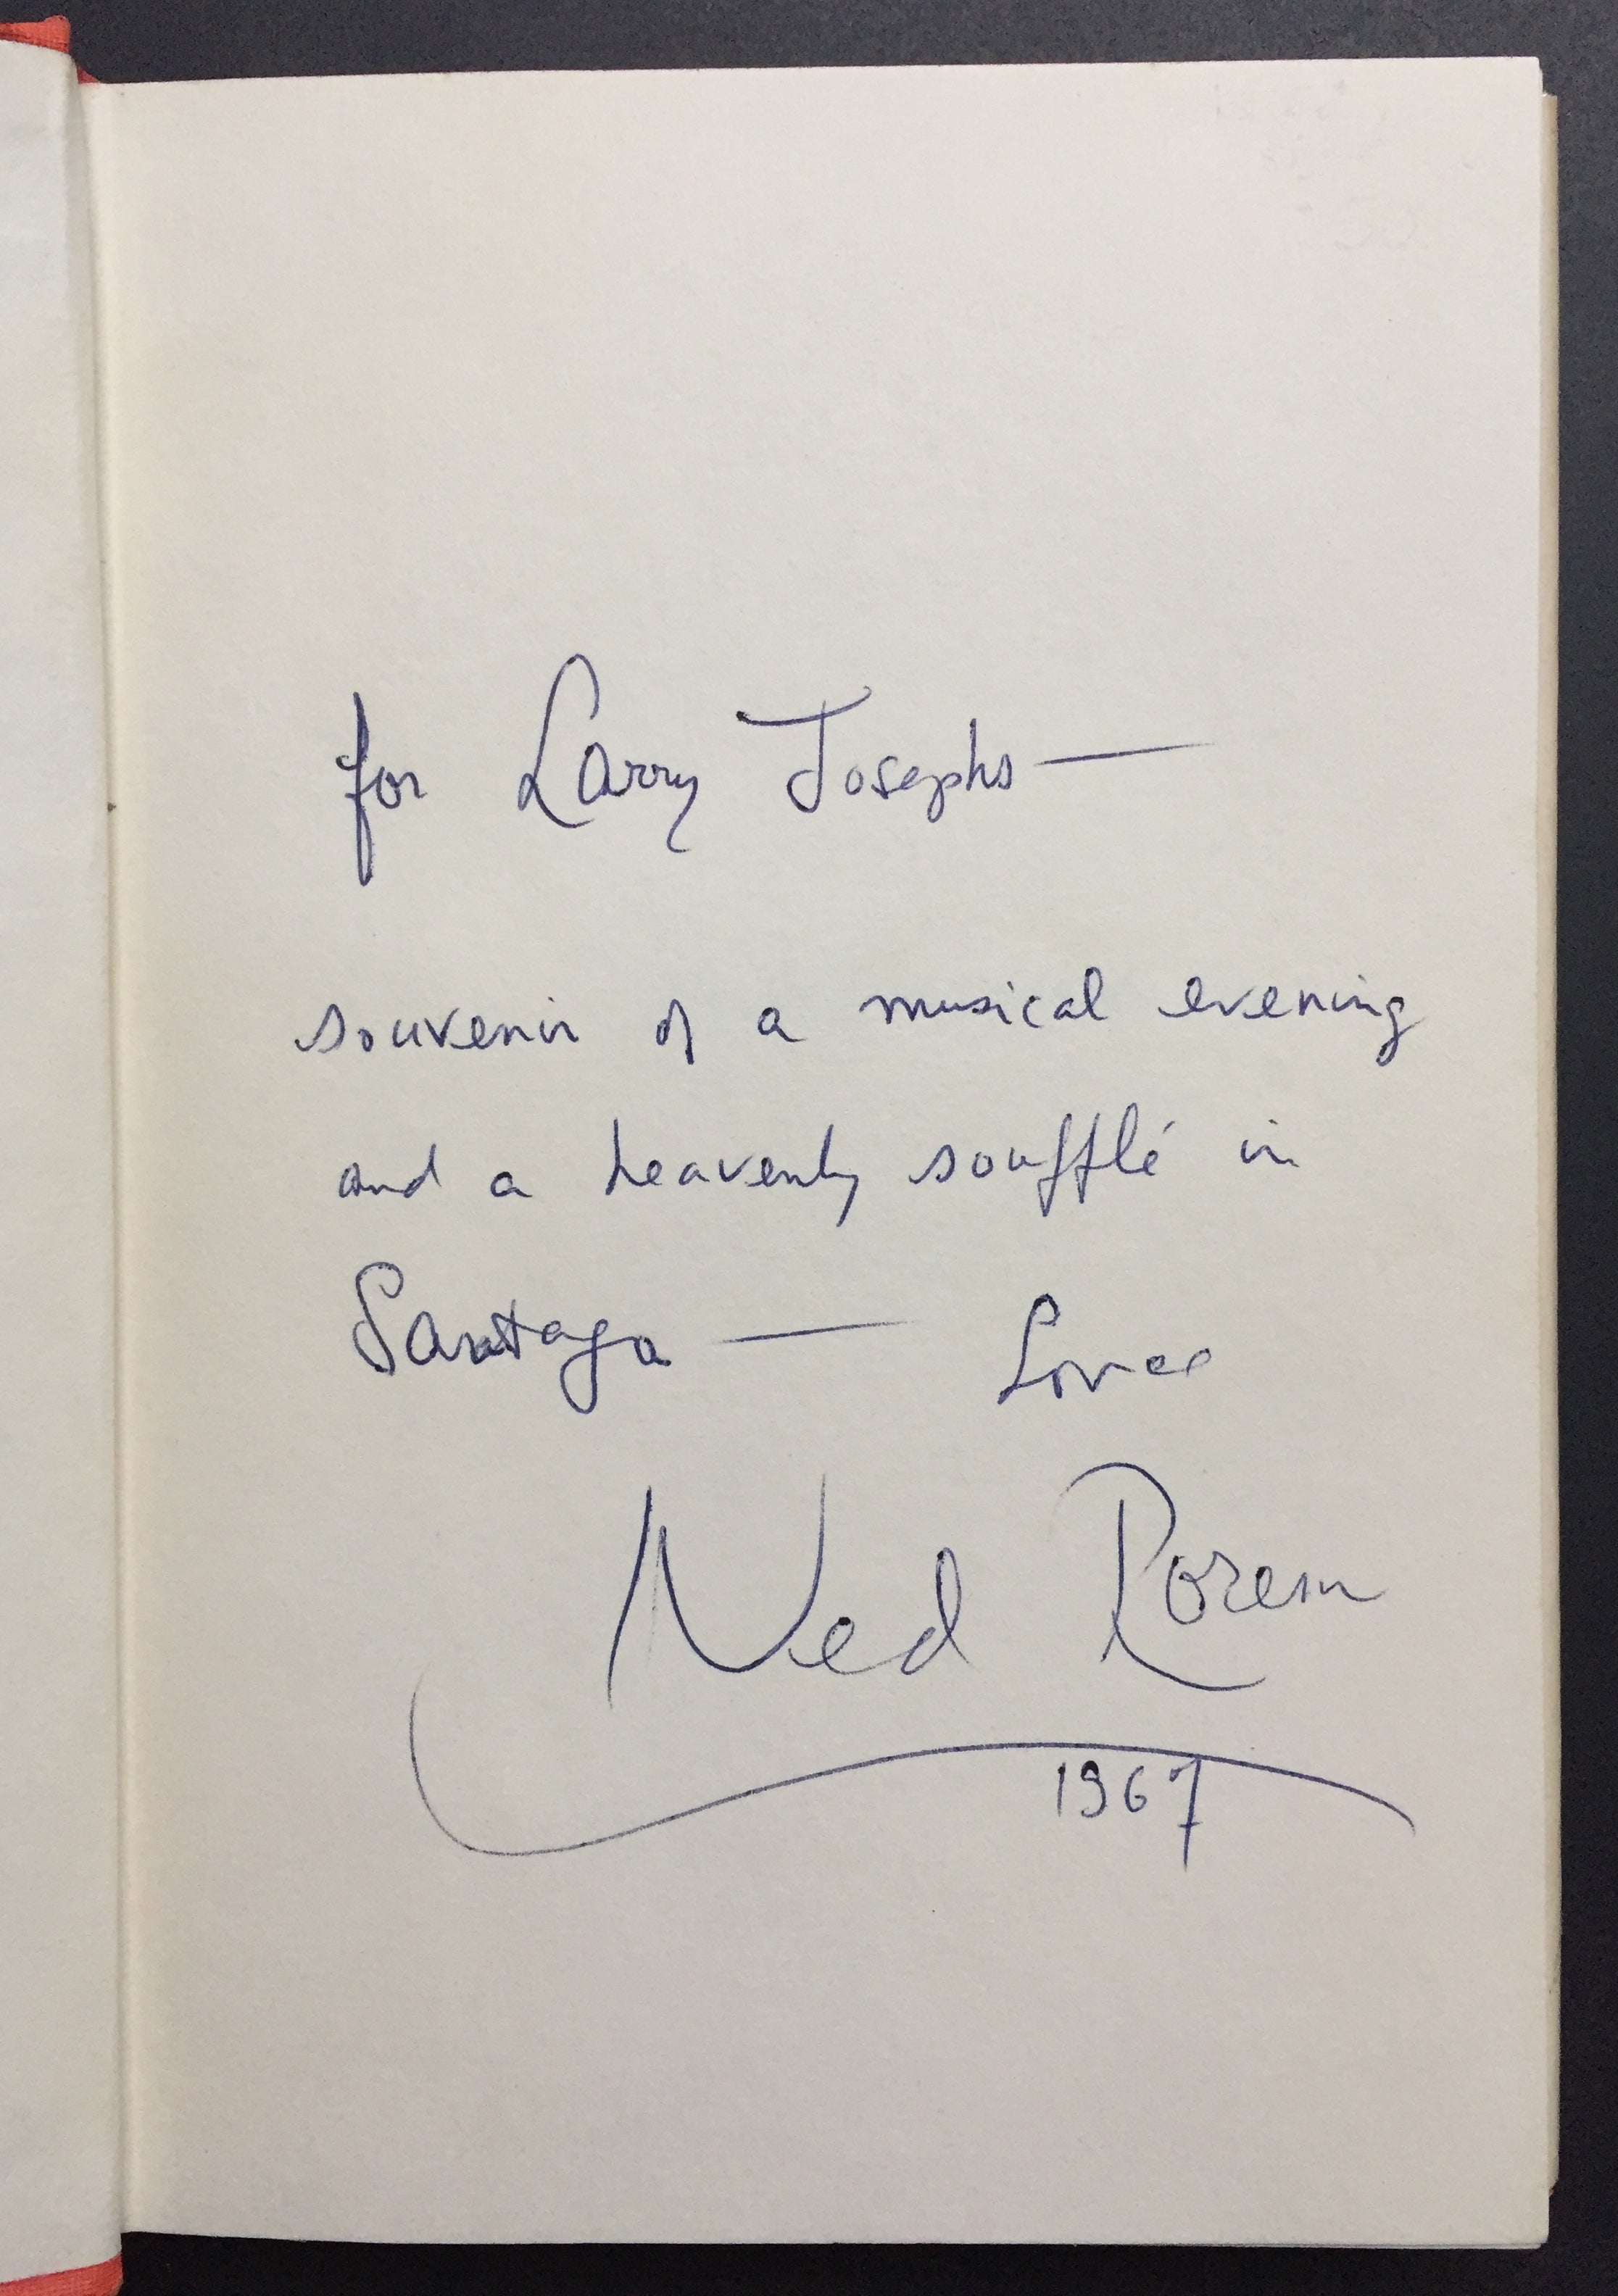 for Larry Josephs—
souvenir of a musical evening
and a heavenly soufflé in
Saratoga — Love
Ned Rorem
1967